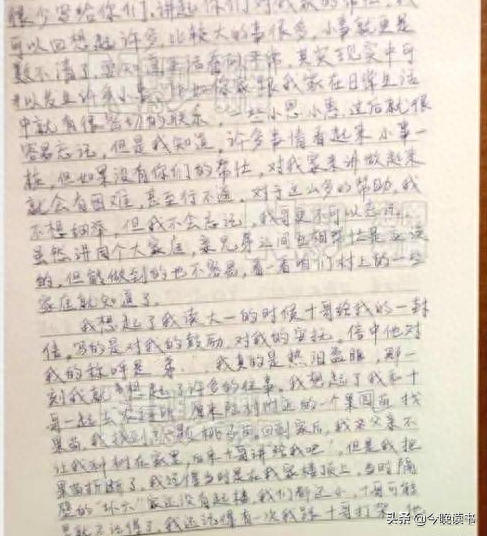 很少写给你们,讲起你们对我家的帮忙,我
可以回想起许多,比较大的事很多,小事就更是
数不清了,要知道生活看似平常,其实现实中可
以发生许多小事,比如你家跟我家在日常生活
中就有很密切的联系,一些小恩小惠,过后就很
容易忘记,但是我知道,许多事情看起来小事一
桩,但如果没有你们的帮忙,对我家来讲做起来
就会有困难,甚至行不通,对于这么多的帮助,我
不想细举,但我不会忘记,我哥更不可以忘记,
虽然讲同个大家庭,亲兄弟之间互相帮忙是应该
的,但能做到的也不容易,看一看咱们村上的一些
家庭就知道了。
我想起了我读大一的时候十哥给我的一封
信,写的是对我的鼓励,对我的安抚,信中他对
我的称呼是"弟",我真的是热泪盈眶,那一
刻我就想起了许多的往事,我想起了我和十
哥一起去 附近的一个果园 找
果苗,我找到了 颗桃子苗,回到家后,我 父亲不
让我种树在家里,后来十哥讲给我吧,但是我把
果苗折断了,我记得当时是在我家楼顶上,当时隔
壁的 家还没有起楼,我们都还小,十哥可能
早就不记得了,我还记得有一次我跟十哥打架,
头条 @今晚读书